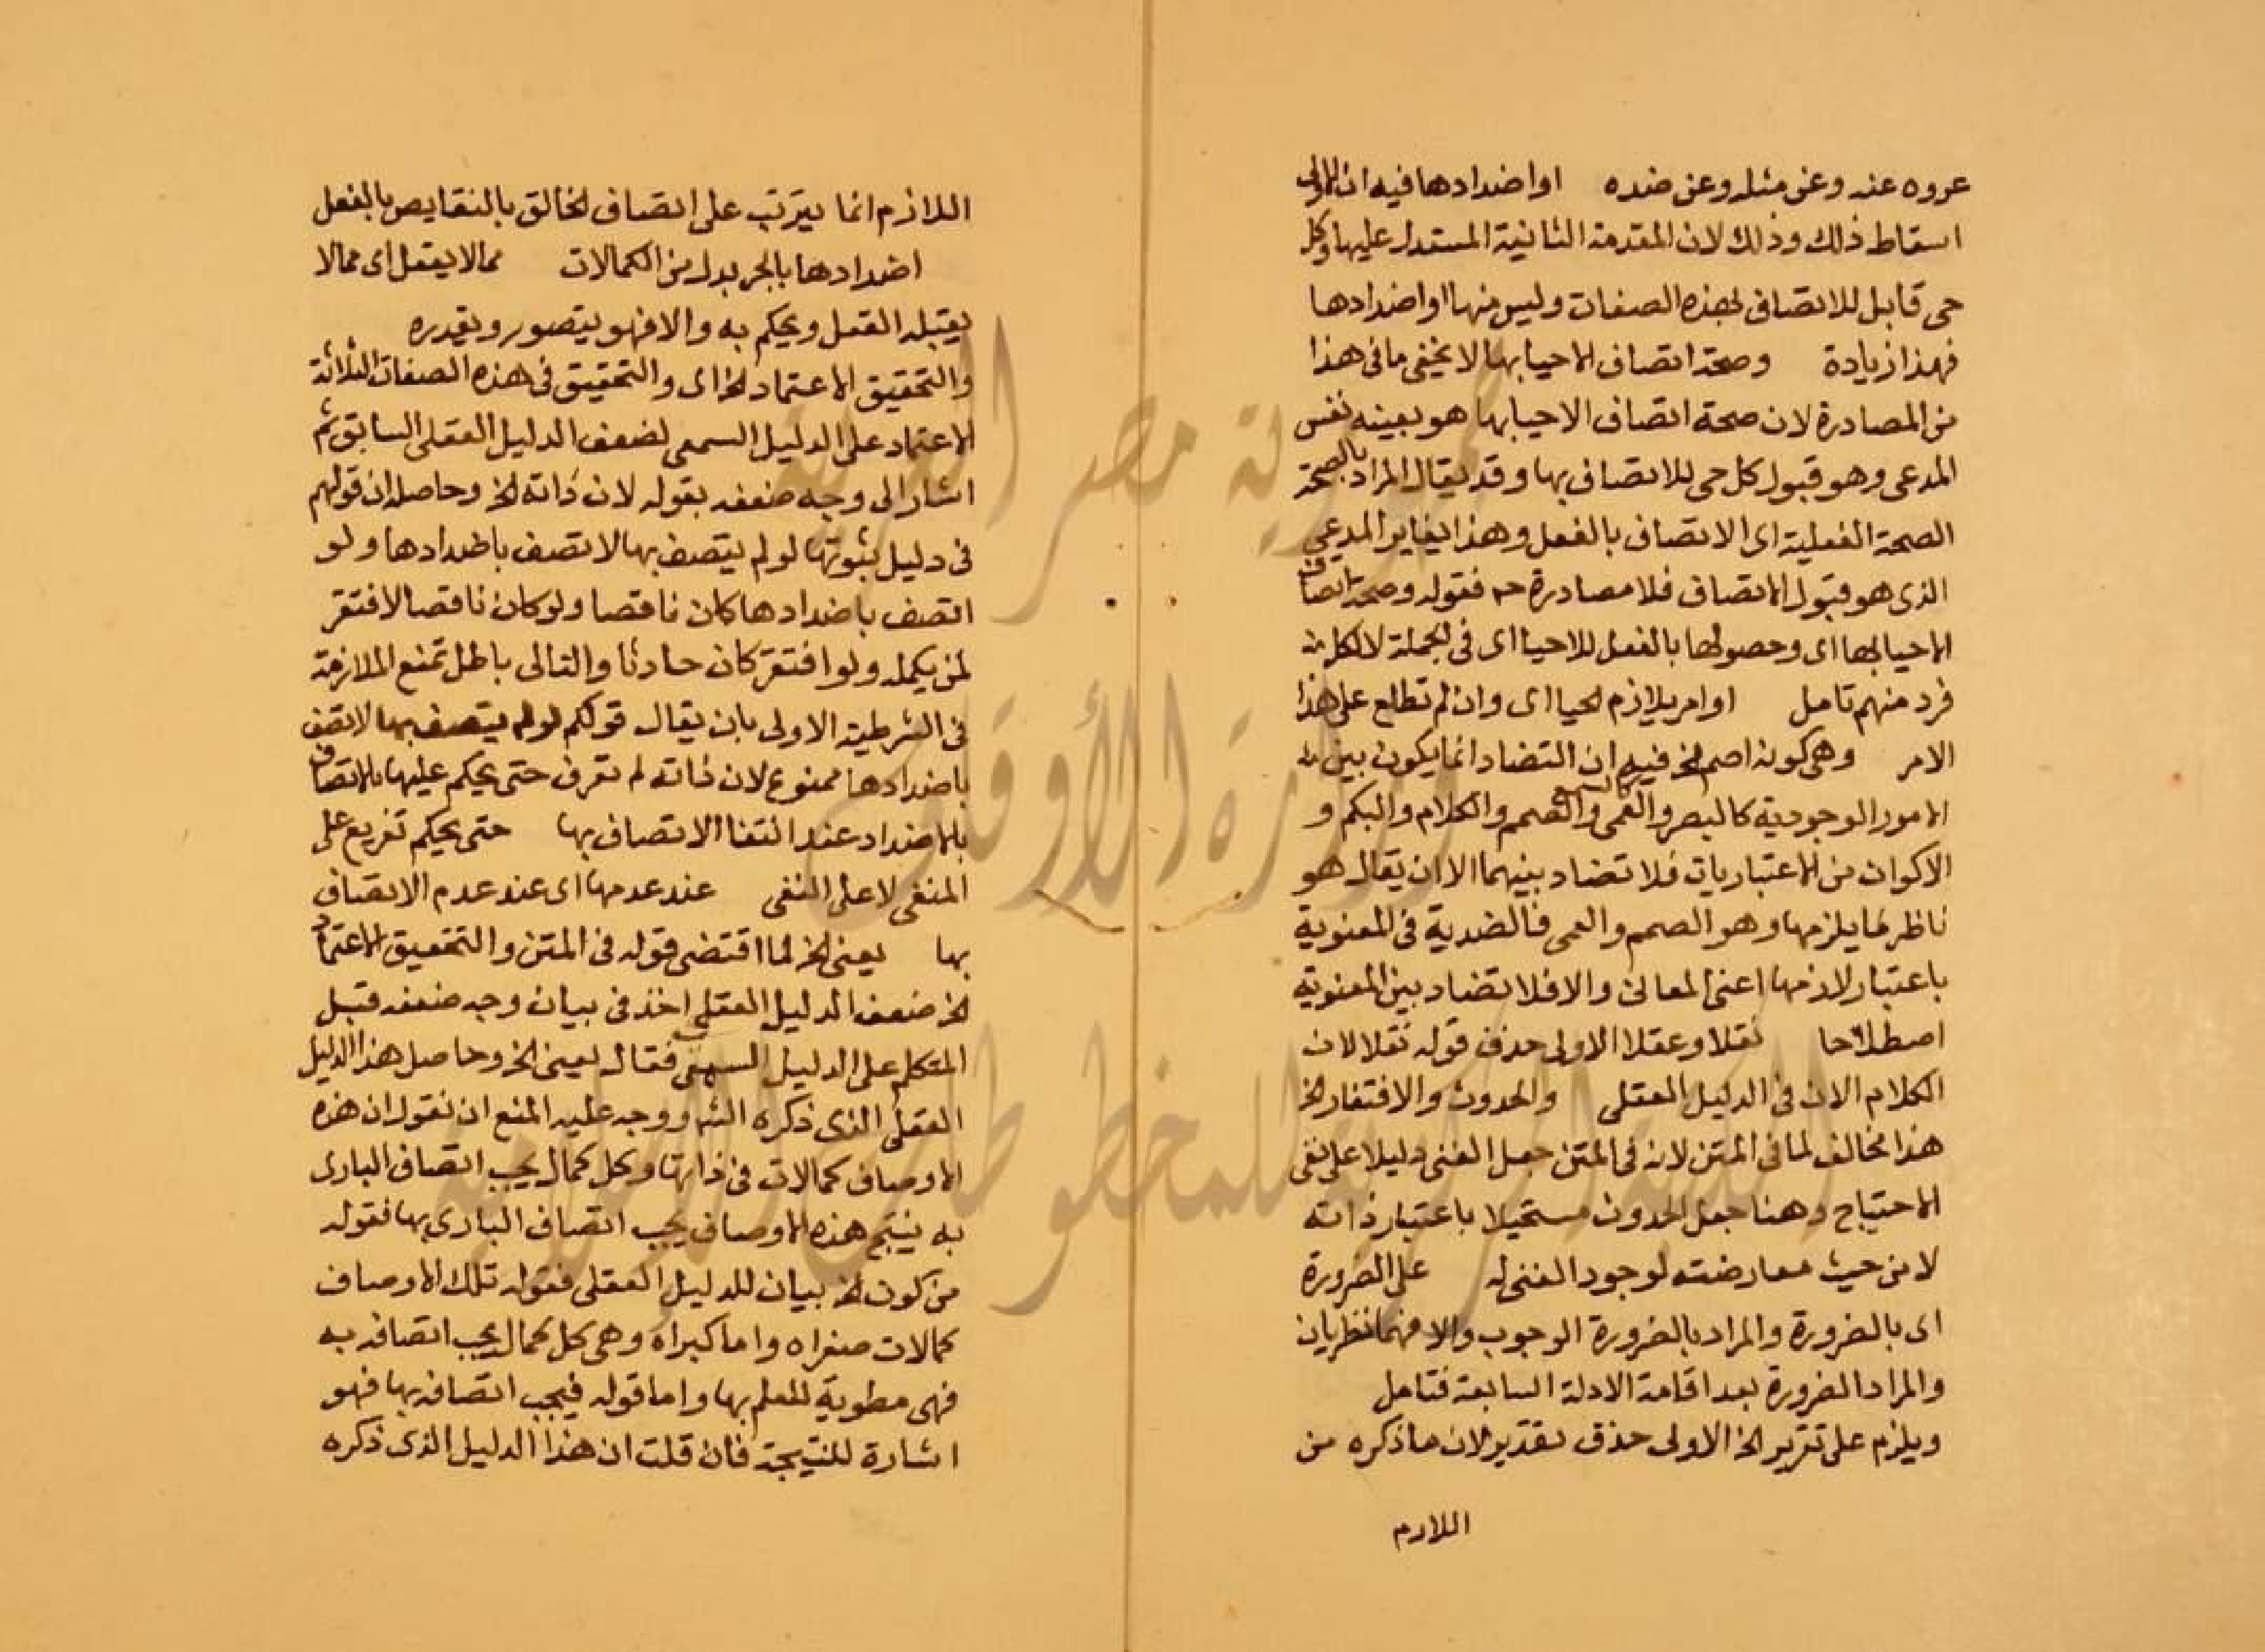 عروه عنه وعن مثله وعن ضده اواضدادها فيه ان الاولى
اسقاط ذلك وذلك لان المقدمة الثانية المستدل عليها وكل
حى قابل للاتصاف بهذه الصفات وليس منها اواضدادها
فهذا زيادة وصحة اتصاف الاحيا بها لا يخفى ما فى هذا
من المصادرة لان صحة اتصاف الاحيا بها هو بعينه نفس
المدعى وهو قبول كل حى للاتصاف بها وقد يقال المراد بالصحة
الصحة الفعلية اى الاتصاف بالفعل وهذا يغاير المدعى
الذى هو قبول الاتصاف فلا مصادرة ح فقوله وصحة اتصاف
الاحيا بها اى وحصولها بالفعل للاحيا اى فى الجملة لا لكل
فرد منهم تامل او امر يلازم الحيا اى وان لم تطلع على هذا
الامر وهى كونه اصم الخ فيه ان التضاد انما يكون بين
الامور الوجودية كالبصر والعمى والسمع والصمم والكلام والبكم و
الاكوان من الاعتباريات فلا تضاد بينهما الا ان يقال هو
ناظر لما يلزمها وهو الصمم والعمى فالضدية فى المعنوية
باعتبار لازمها اعنى المعانى والا فلا تضاد بين المعنوية
اصطلاحا نقلا وعقلا الاولى حذف قوله نقلا لان
الكلام الان فى الدليل العقلى والحدوث والافتقار الخ
هذا مخالف لما فى المتن لانه فى المتن جعل الغنى دليلا على نفى
الاحتياج وهنا جعل الحدوث مستحيلا باعتبار ذاته
لا من حيث معارضته لوجود الغنى له على الضرورة
اى بالضرورة والمراد بالضرورة الوجوب والا فهما نظريان
والمراد الضرورة بعد اقامة الادلة السابقة فتامل
ويلزم على تقرير الخ الاولى حذف تقدير لان ما ذكره من
اللازم
اللازم انما يترتب على اتصاف الخالق بالنقايص بالفعل
اضدادها بالجر بدل من الكمالات مما لا يعقل اى مما لا
يقبله العقل ويحكم به والا فهو يتصور ويقدره
والتحقيق الاعتماد الخ اى والتحقيق فى هذه الصفات الثلاثة
الاعتماد على الدليل السمعى لضعف الدليل العقلى السابق ثم
اشار الى وجه ضعفه بقوله لان ذاته الخ وحاصله ان قولهم
فى دليل ثبوتها لو لم يتصف بها لاتصف باضدادها ولو
اتصف باضدادها كان ناقصا ولو كان ناقصا لافتقر
لمن يكمله ولو افتقر كان حادثا والتالى باطل تمنع الملازمة
فى الشرطية الاولى بان يقال قولكم لو لم يتصف بها لاتصف
باضدادها ممنوع لان ذاته لم تعرف حتى يحكم عليها بالاتصاف
بالاضداد عند انتفا الاتصاف بها حتى يحكم تفريع على
المنفى لا على النفى عند عدمها اى عند عدم الاتصاف
بها يعنى الخ لما اقتضى قوله فى المتن والتحقيق الاعتماد
الخ ضعف الدليل العقلى اخذ فى بيان وجه ضعفه قبل
المتكلم على الدليل السمعى فقال يعنى الخ وحاصل هذا الدليل
العقلى الذى ذكره الش ووجه عليه المنع ان نقول ان هذه
الاوصاف كمالات فى ذاتها وكل كمال يجب اتصاف البارى
به ينتج هذه الاوصاف يجب اتصاف البارى بها فقوله
من كون الخ بيان للدليل العقلى فقوله تلك الاوصاف
كمالات صغراه واما كبراه وهى كل كمال يجب اتصافه به
فهى مطوية للعلم بها واما قوله فيجب اتصافه بها فهو
اشارة للنتيجة فان قلت ان هذا الدليل الذى ذكره
جمهورية مصر العربية
وزارة الأوقاف
المكتبة المركزية للمخطوطات الإسلامية